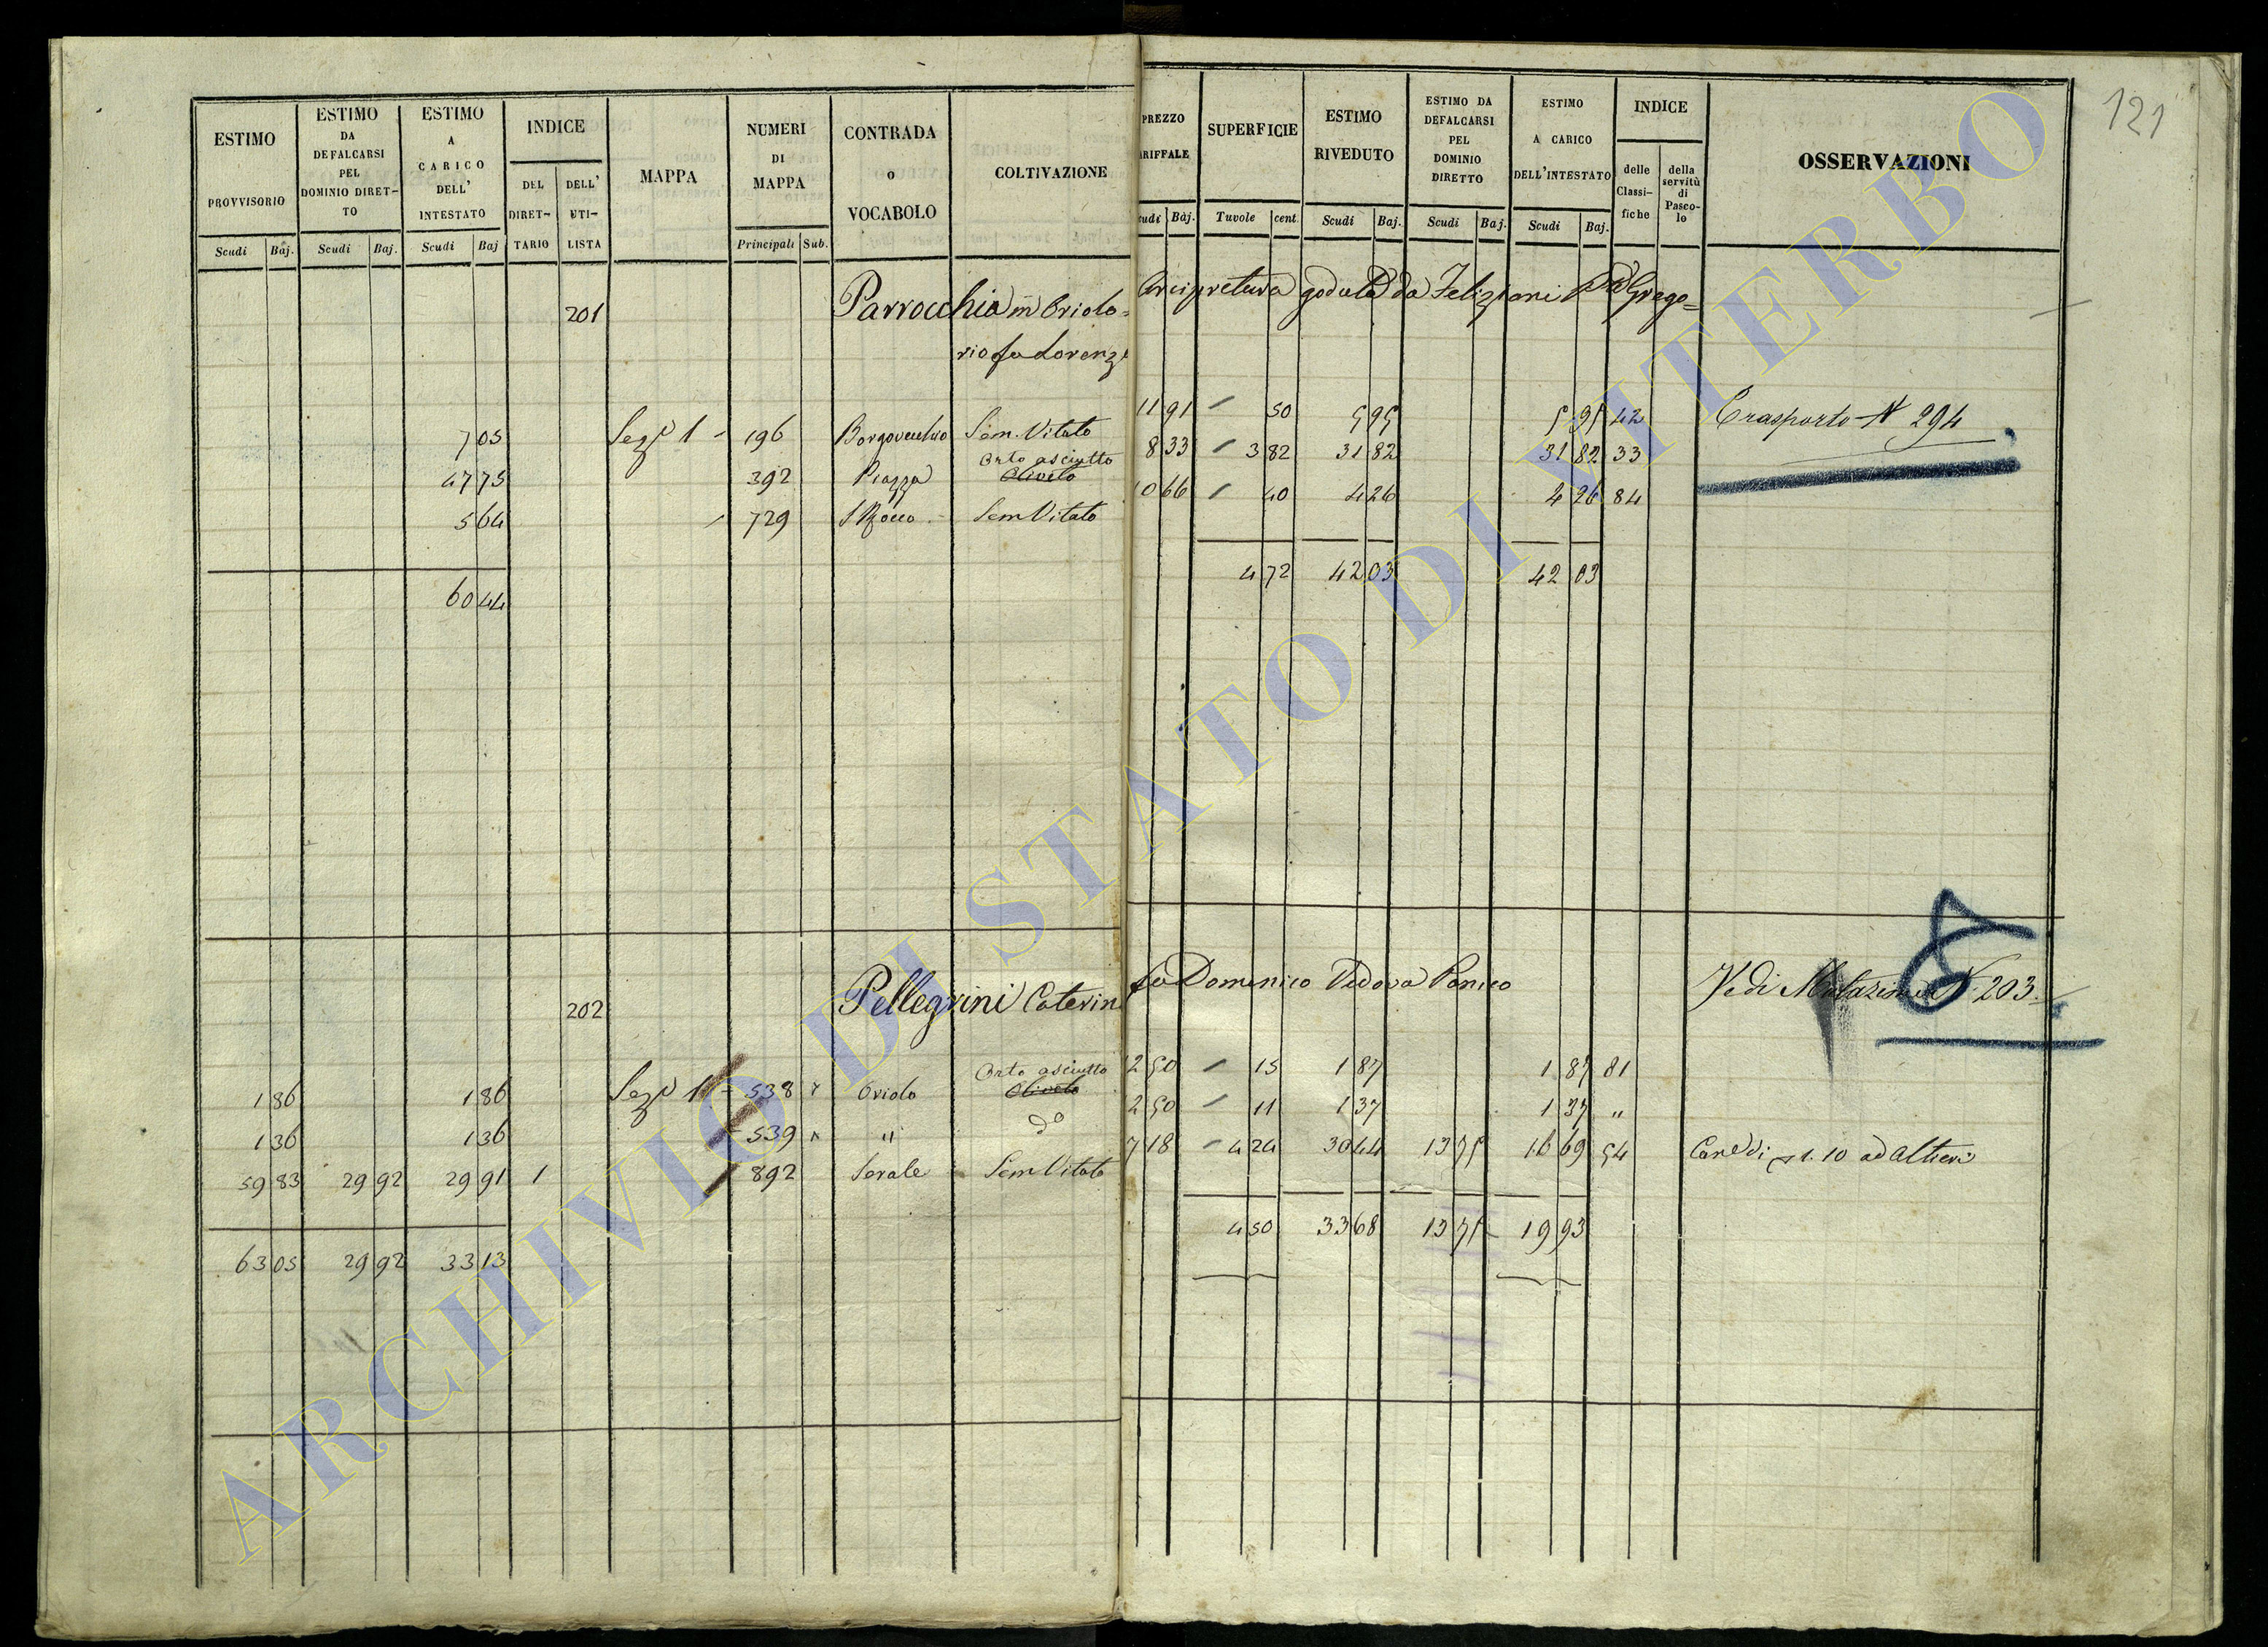 121
ESTIMO PROVVISORIO Scudi Baj.
ESTIMO DA DEFALCARSI PEL DOMINIO DIRETTO Scudi Baj.
ESTIMO A CARICO DELL' INTESTATO Scudi Baj
INDICE DEL DIRETTARIO DELL' UTILISTA
MAPPA
NUMERI DI MAPPA Principali Sub.
CONTRADA O VOCABOLO
COLTIVAZIONE
PREZZO ARIFFALE cudi Baj.
SUPERFICIE Tavole cent.
ESTIMO RIVEDUTO Scudi Baj.
ESTIMO DA DEFALCARSI PEL DOMINIO DIRETTO Scudi Baj.
ESTIMO A CARICO DELL'INTESTATO Scudi Baj.
INDICE delle Classifiche della servitù di Pascolo
OSSERVAZIONI
201 Parrocchia in Oriolo= Arcipretura goduta da Feliziani D Grego=
rio fu Lorenzo
7 05 Seze 1 - 196 Borgovecchio Sem. Vitato 11 91 / 50 5 95 5 95 42 Trasporto N 294
47 75 392 Piazza Orto asciutto Oliveto 8 33 / 3 82 31 82 31 82 33
5 64 / 729 S Rocco Sem Vitato 10 66 / 40 4 26 4 26 84
60 44 4 72 42 03 42 03
202 Pellegrini Caterin fu Domenico Vedova Vedi Mutazione N. 203
1 86 1 86 Seze 1 - 538 Oriolo Orto asciutto Oliveto 12 50 / 15 1 87 1 87 81
1 36 1 36 - 539 " do 12 50 / 11 1 37 1 37 "
59 83 29 92 29 91 1 / 892 Serale Sem Vitato 7 18 / 4 24 30 44 13 75 16 69 54 Cane di 1.10 ad Altieri
63 05 29 92 33 13 4 50 33 68 13 75 19 93
ARCHIVIO DI STATO DI VITERBO